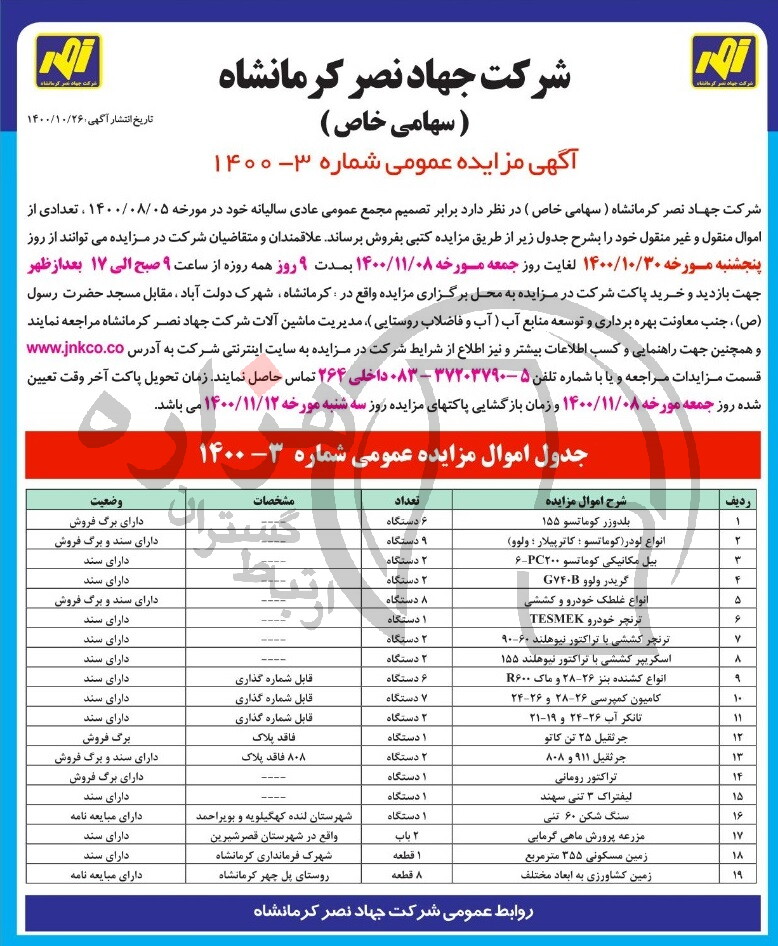 شرکت جهاد نصر کرمانشاه
( سهامی خاص )
تاریخ انتشار آگهی: ۱۴۰۰/۱۰/۲۶
شرکت جهاد نصر کرمانشاه
شرکت جهاد نصر کرمانشاه
آگهی مزایده عمومی شماره ۳- ۱۴۰۰
شرکت جهـاد نصر کرمانشاه ( سهامی خاص ) در نظر دارد برابر تصمیم مجمع عمومی عادی سالیانه خود در مورخه ۱۴۰۰/۰۸/۰۵ ، تعدادی از
اموال منقول و غیر منقول خود را بشرح جدول زیر از طریق مزایده کتبی بفروش برساند. علاقمندان و متقاضیان شرکت در مـزایده می توانند از روز
پنجشنبه مـورخه ۱۴۰۰/۱۰/۳۰ لغایت روز جمعه مـورخه ۱۴۰۰/۱۱/۰۸ بمـدت ۹ روز همه روزه از ساعت ۹ صبح الی ۱۷ بعدازظهر
جهت بازدید و خـرید پاکت شرکت در مـزایده به محـل بـرگـزاری مزایده واقع در : کرمانشاه ، شهرک دولت آباد ، مقابل مسجد حضرت رسول
(ص) ، جنب معاونت بهره برداری و توسعه منابع آب ( آب و فاضلاب روستایی )، مدیریت ماشین آلات شرکت جهاد نصـر کرمانشاه مراجعه نمایند
و همچنین جهت راهنمایی و کسب اطلاعات بیشتر و نیز اطلاع از شرایط شرکت در مـزایده به سایت اینترنتی شرکت به آدرس www.jnkco.co
قسمت مـزایدات مـراجعه و یا با شماره تلفن ۵ -۳۷۲۰۳۷۹۰ - ۰۸۳ داخلی ۲۶۴ تماس حاصل نمایند. زمان تحویل پاکت آخر وقت تعیین
شده روز جمعه مورخه ۱۴۰۰/۱۱/۰۸ و زمان بازگشایی پاکتهای مزایده روز سه شنبه مورخه ۱۴۰۰/۱۱/۱۲ می باشد.
جدول اموال مزایده عمومی شماره ۳- ۱۴۰۰
ردیف شرح اموال مزایده تعداد مشخصات وضعیت
۱ بلدوزر کوماتسو ۱۵۵ ۶ دستگاه ---- دارای برگ فروش
۲ انواع لودر(کوماتسو ؛ کاترپیلار ؛ ولوو) ۹ دستگاه ---- دارای سند و برگ فروش
۳ بیل مکانیکی کوماتسو PC۲۰۰-۶ ۲ دستگاه ---- دارای سند
۴ گریدر ولوو G۷۴۰B ۲ دستگاه ---- دارای سند
۵ انواع غلطک خودرو و کششی ۸ دستگاه ---- دارای سند و برگ فروش
۶ ترنچر خودرو TESMEK ۱ دستگاه ---- دارای سند
۷ ترنچر کششی با تراکتور نیوهلند ۶۰-۹۰ ۲ دستگاه ---- دارای سند
۸ اسکریپر کششی با تراکتور نیوهلند ۱۵۵ ۲ دستگاه ---- دارای سند
۹ انواع کشنده بنز ۲۶-۲۸ و ماک R۶۰۰ ۶ دستگاه قابل شماره گذاری دارای سند
۱۰ کامیون کمپرسی ۲۶-۲۸ و ۲۶-۲۴ ۷ دستگاه قابل شماره گذاری دارای سند
۱۱ تانکر آب ۲۶-۲۴ و ۱۹-۲۱ ۲ دستگاه قابل شماره گذاری دارای سند
۱۲ جرثقیل ۲۵ تن کاتو ۱ دستگاه فاقد پلاک برگ فروش
۱۳ جرثقیل ۹۱۱ و ۸۰۸ ۲ دستگاه ۸۰۸ فاقد پلاک دارای سند و برگ فروش
۱۴ تراکتور رومانی ۱ دستگاه ---- دارای برگ فروش
۱۵ لیفتراک ۳ تنی سهند ۱ دستگاه ---- دارای سند
۱۶ سنگ شکن ۶۰ تنی ۱ دستگاه شهرستان لنده کهگیلویه و بویراحمد دارای مبایعه نامه
۱۷ مزرعه پرورش ماهی گرمابی ۲ باب واقع در شهرستان قصرشیرین دارای سند
۱۸ زمین مسکونی ۳۵۵ مترمربع ۱ قطعه شهرک فرمانداری کرمانشاه دارای سند
۱۹ زمین کشاورزی به ابعاد مختلف ۸ قطعه روستای پل چهر کرمانشاه دارای مبایعه نامه
روابط عمومی شرکت جهاد نصر کرمانشاه
هزاره
گستران
ارتباط